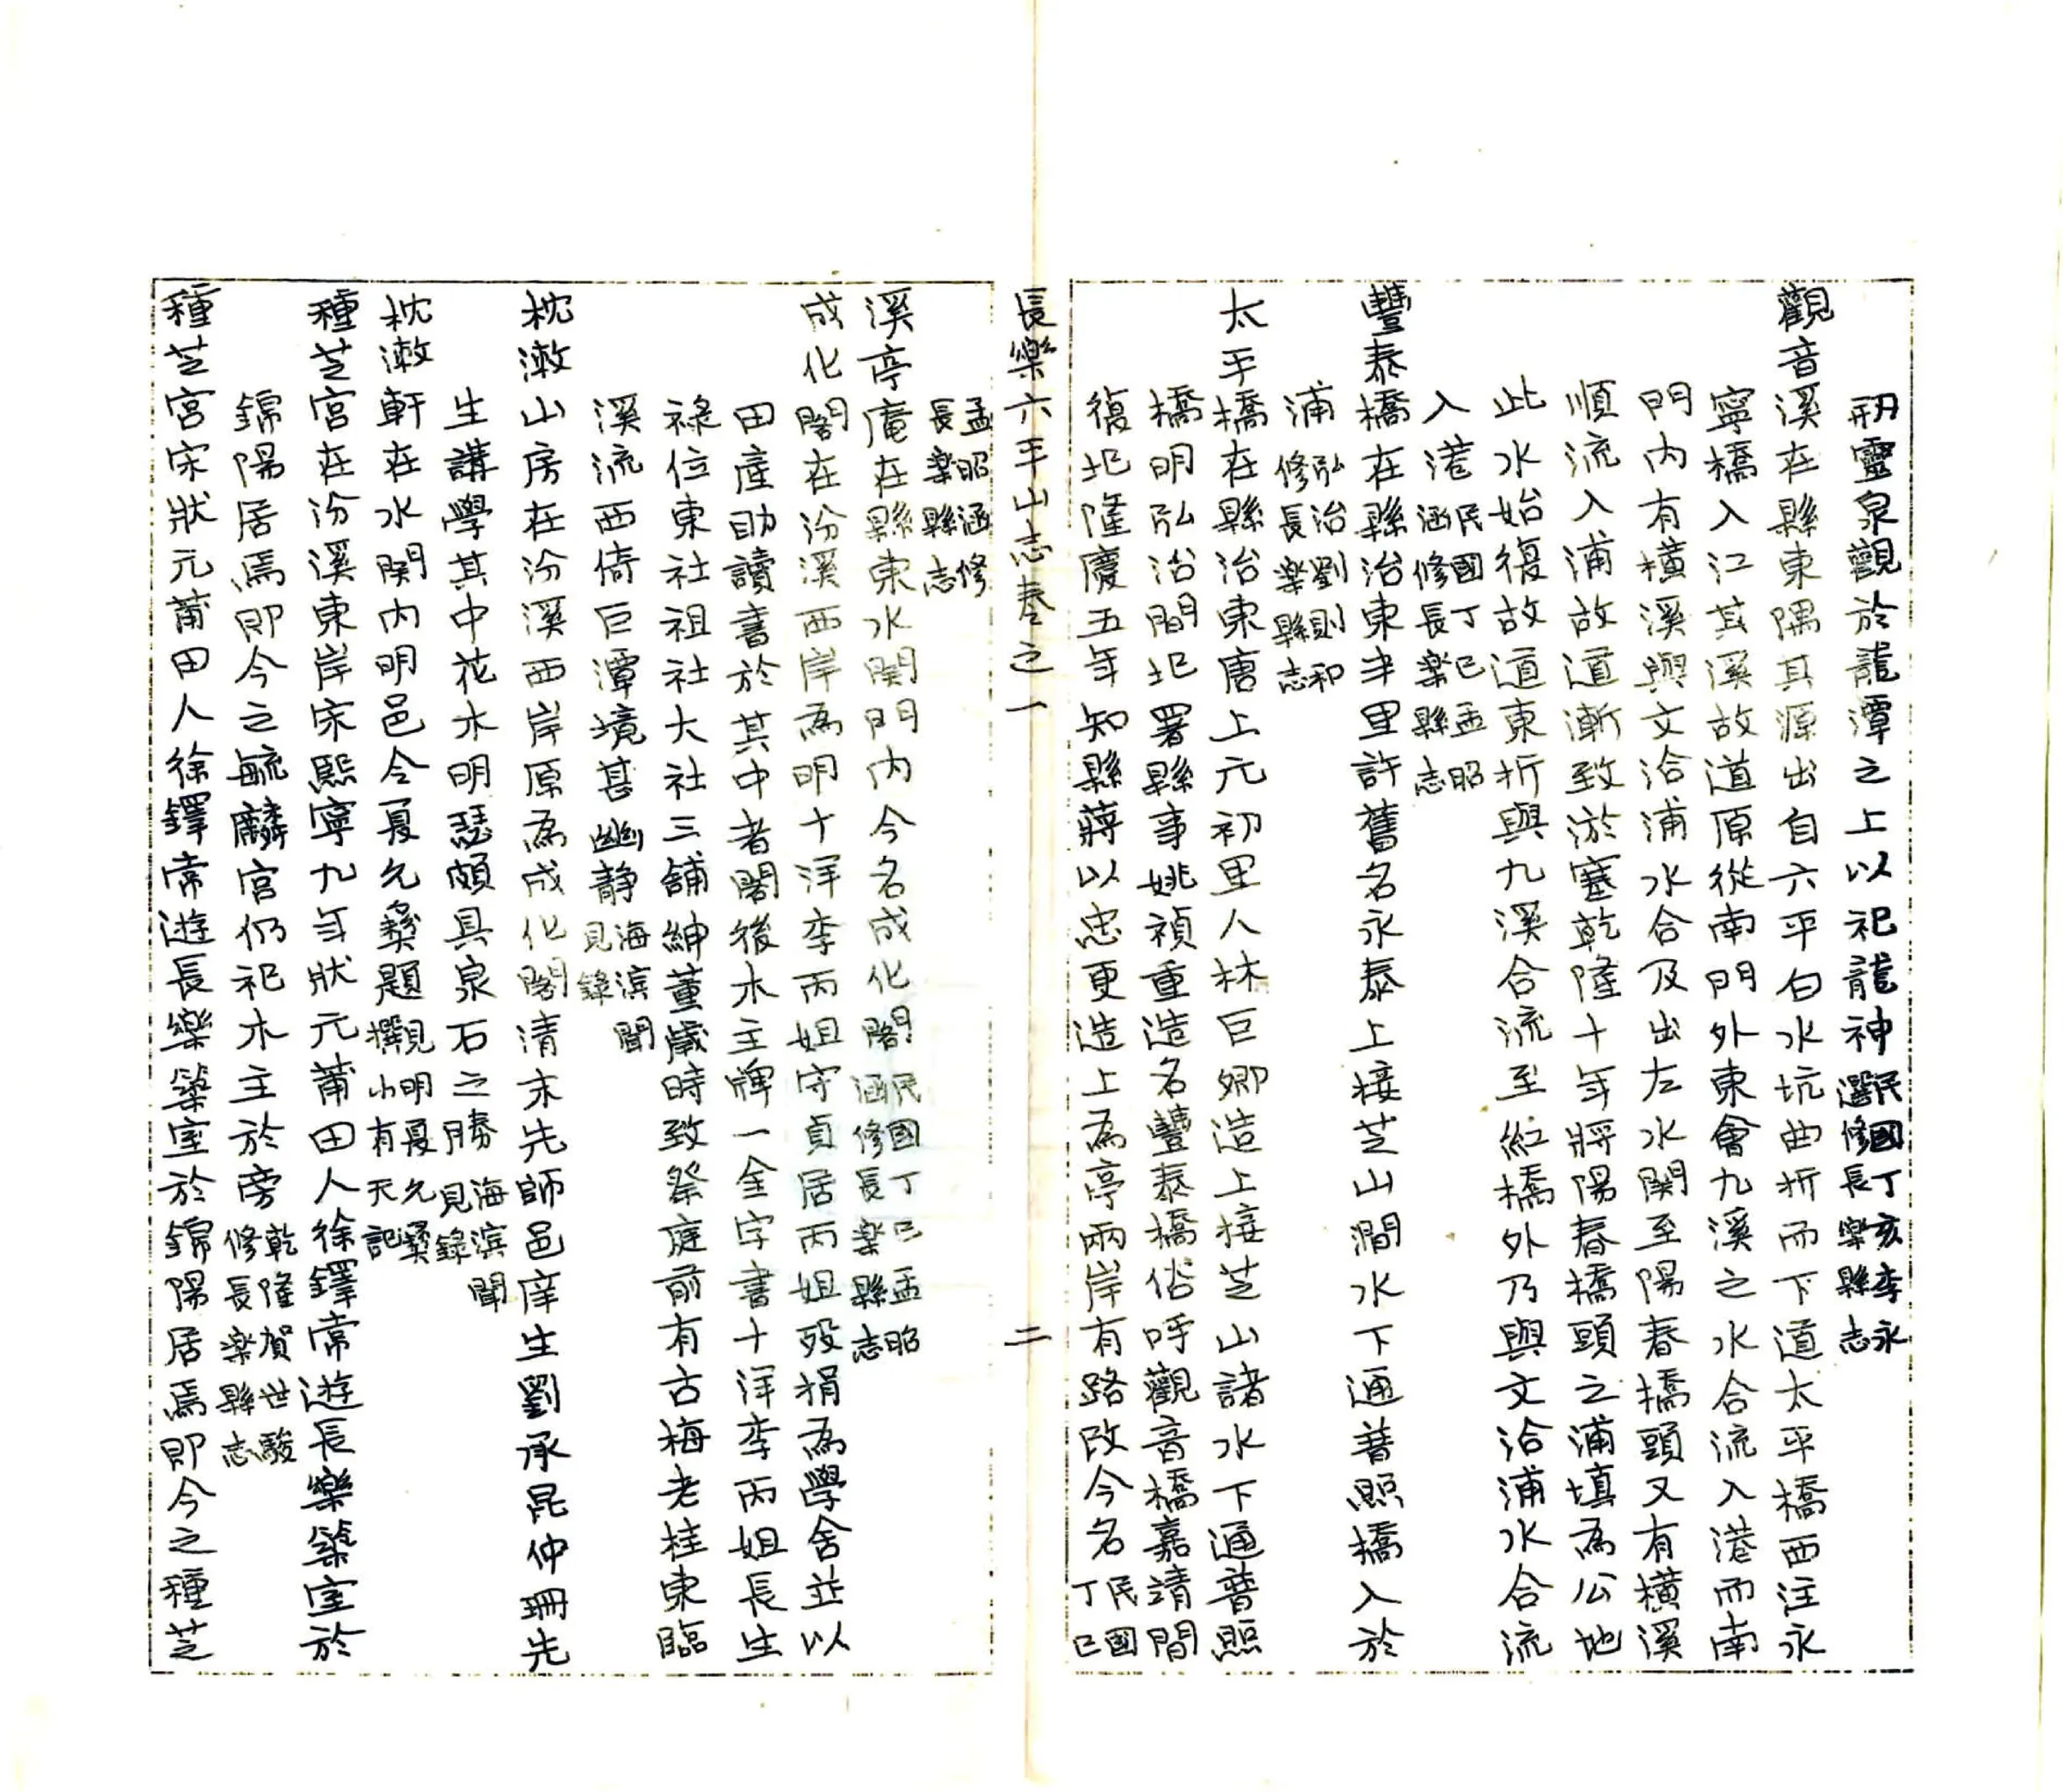 刱靈泉觀於龍潭之上以祀龍神民國丁亥李永選修長樂縣志
觀音溪在縣東隅其源出自六平白水坑曲折而下道太平橋西注永
寧橋入江其溪故道原從南門外東會九溪之水合流入港而南
門内有橫溪與文洽浦水合及出左水関至陽春橋頭又有橫溪
順流入浦故道漸致淤塞乾隆十年將陽春橋頭之浦填為公地
此水始復故道東折與九溪合流至紅橋外乃與文洽浦水合流
入港民國丁巳孟昭涵修長楽縣志
豐泰橋在縣治東半里許舊名永泰上接芝山澗水下通普照橋入於
浦弘治劉則和修長楽縣志
太平橋在縣治東唐上元初里人林巨卿造上接芝山諸水下通普照
橋明弘治間圮署縣事姚禎重造名豐泰橋俗呼觀音橋嘉靖間
復圮隆慶五年知縣蔣以忠更造上為亭兩岸有路改今名民國丁巳
長樂六平山志卷之一
二
孟昭涵修長楽縣志
溪亭庵在縣東水関門内今名成化閣民國丁巳孟昭涵修長楽縣志
成化閣在汾溪西岸為明十洋李丙姐守貞居丙姐歿捐為學舍並以
田産助讀書於其中者閣後木主牌一金字書十洋李丙姐長生
祿位東社祖社大社三舖紳董歲時致祭庭前有古梅老桂東臨
溪流西倚巨潭境甚幽静海滨聞見錄
枕漱山房在汾溪西岸原為成化閣清末先師邑庠生劉承昆仲珊先
生講學其中花木明瑟頗具泉石之勝海滨聞見錄
枕漱軒在水関内明邑令夏允彝題見明夏允彝撰小有天記
種芝宮在汾溪東岸宋熙寧九年狀元莆田人徐鐸常遊長樂築室於
錦陽居焉即今之毓麟宮仍祀木主於旁乾隆賀世駿修長楽縣志
種芝宮宋狀元莆田人徐鐸常遊長樂築室於錦陽居焉即今之種芝